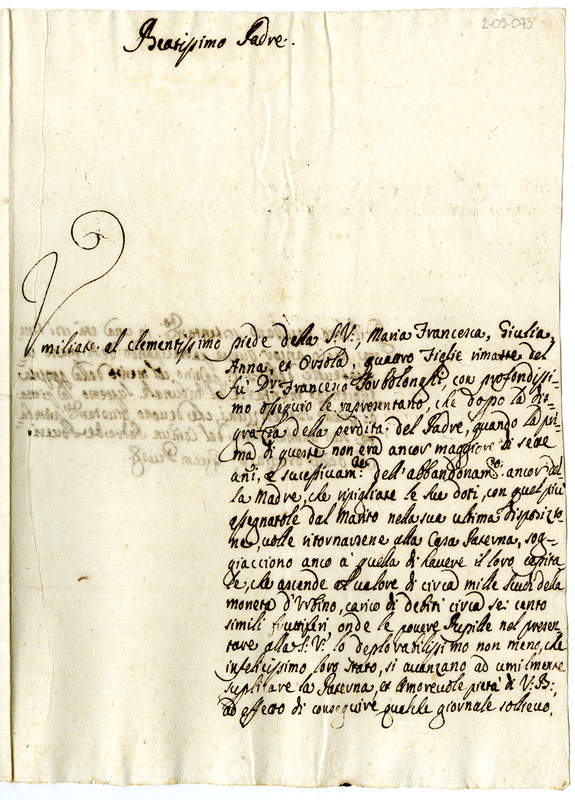 2-09-093
Beatissimo Padre.
Vmiliate al clementissimo piede dela S.V., Maria Francesca, Giulia,
Anna, et Orsola, quattro Figlie rimaste del
fù Dr. Francesco con profondissi-
mo ossequio le rapresentano, che doppo la dis-
gratia della perdita del Padre, quando la pri-
ma di queste non era ancor maggiore di sette
anni, e sucessivam:te dell'abbandonam:to ancor del-
la Madre, che ripigliate le sue doti, con quel più
assegnatole dal Marito nella sua ultima disposizio-
ne, volle ritornarsene alla Casa Paterna, sog-
giacciono anco à quella di havere il loro capita-
le, che ascende al valore di circa mille scudi dela
moneta d'Urbino, carico di debiti circa sei cento
simili fruttiferi onde le povere Pupille nel presen-
tare alla S.V. lo deplorabilissimo non meno, che
infelicissimo loro stato, si avanzano ad umilmente
suplicare la Paterna, et Amorevole pietà di V.B.,
ad effetto di conseguire qualche giornale sollievo,